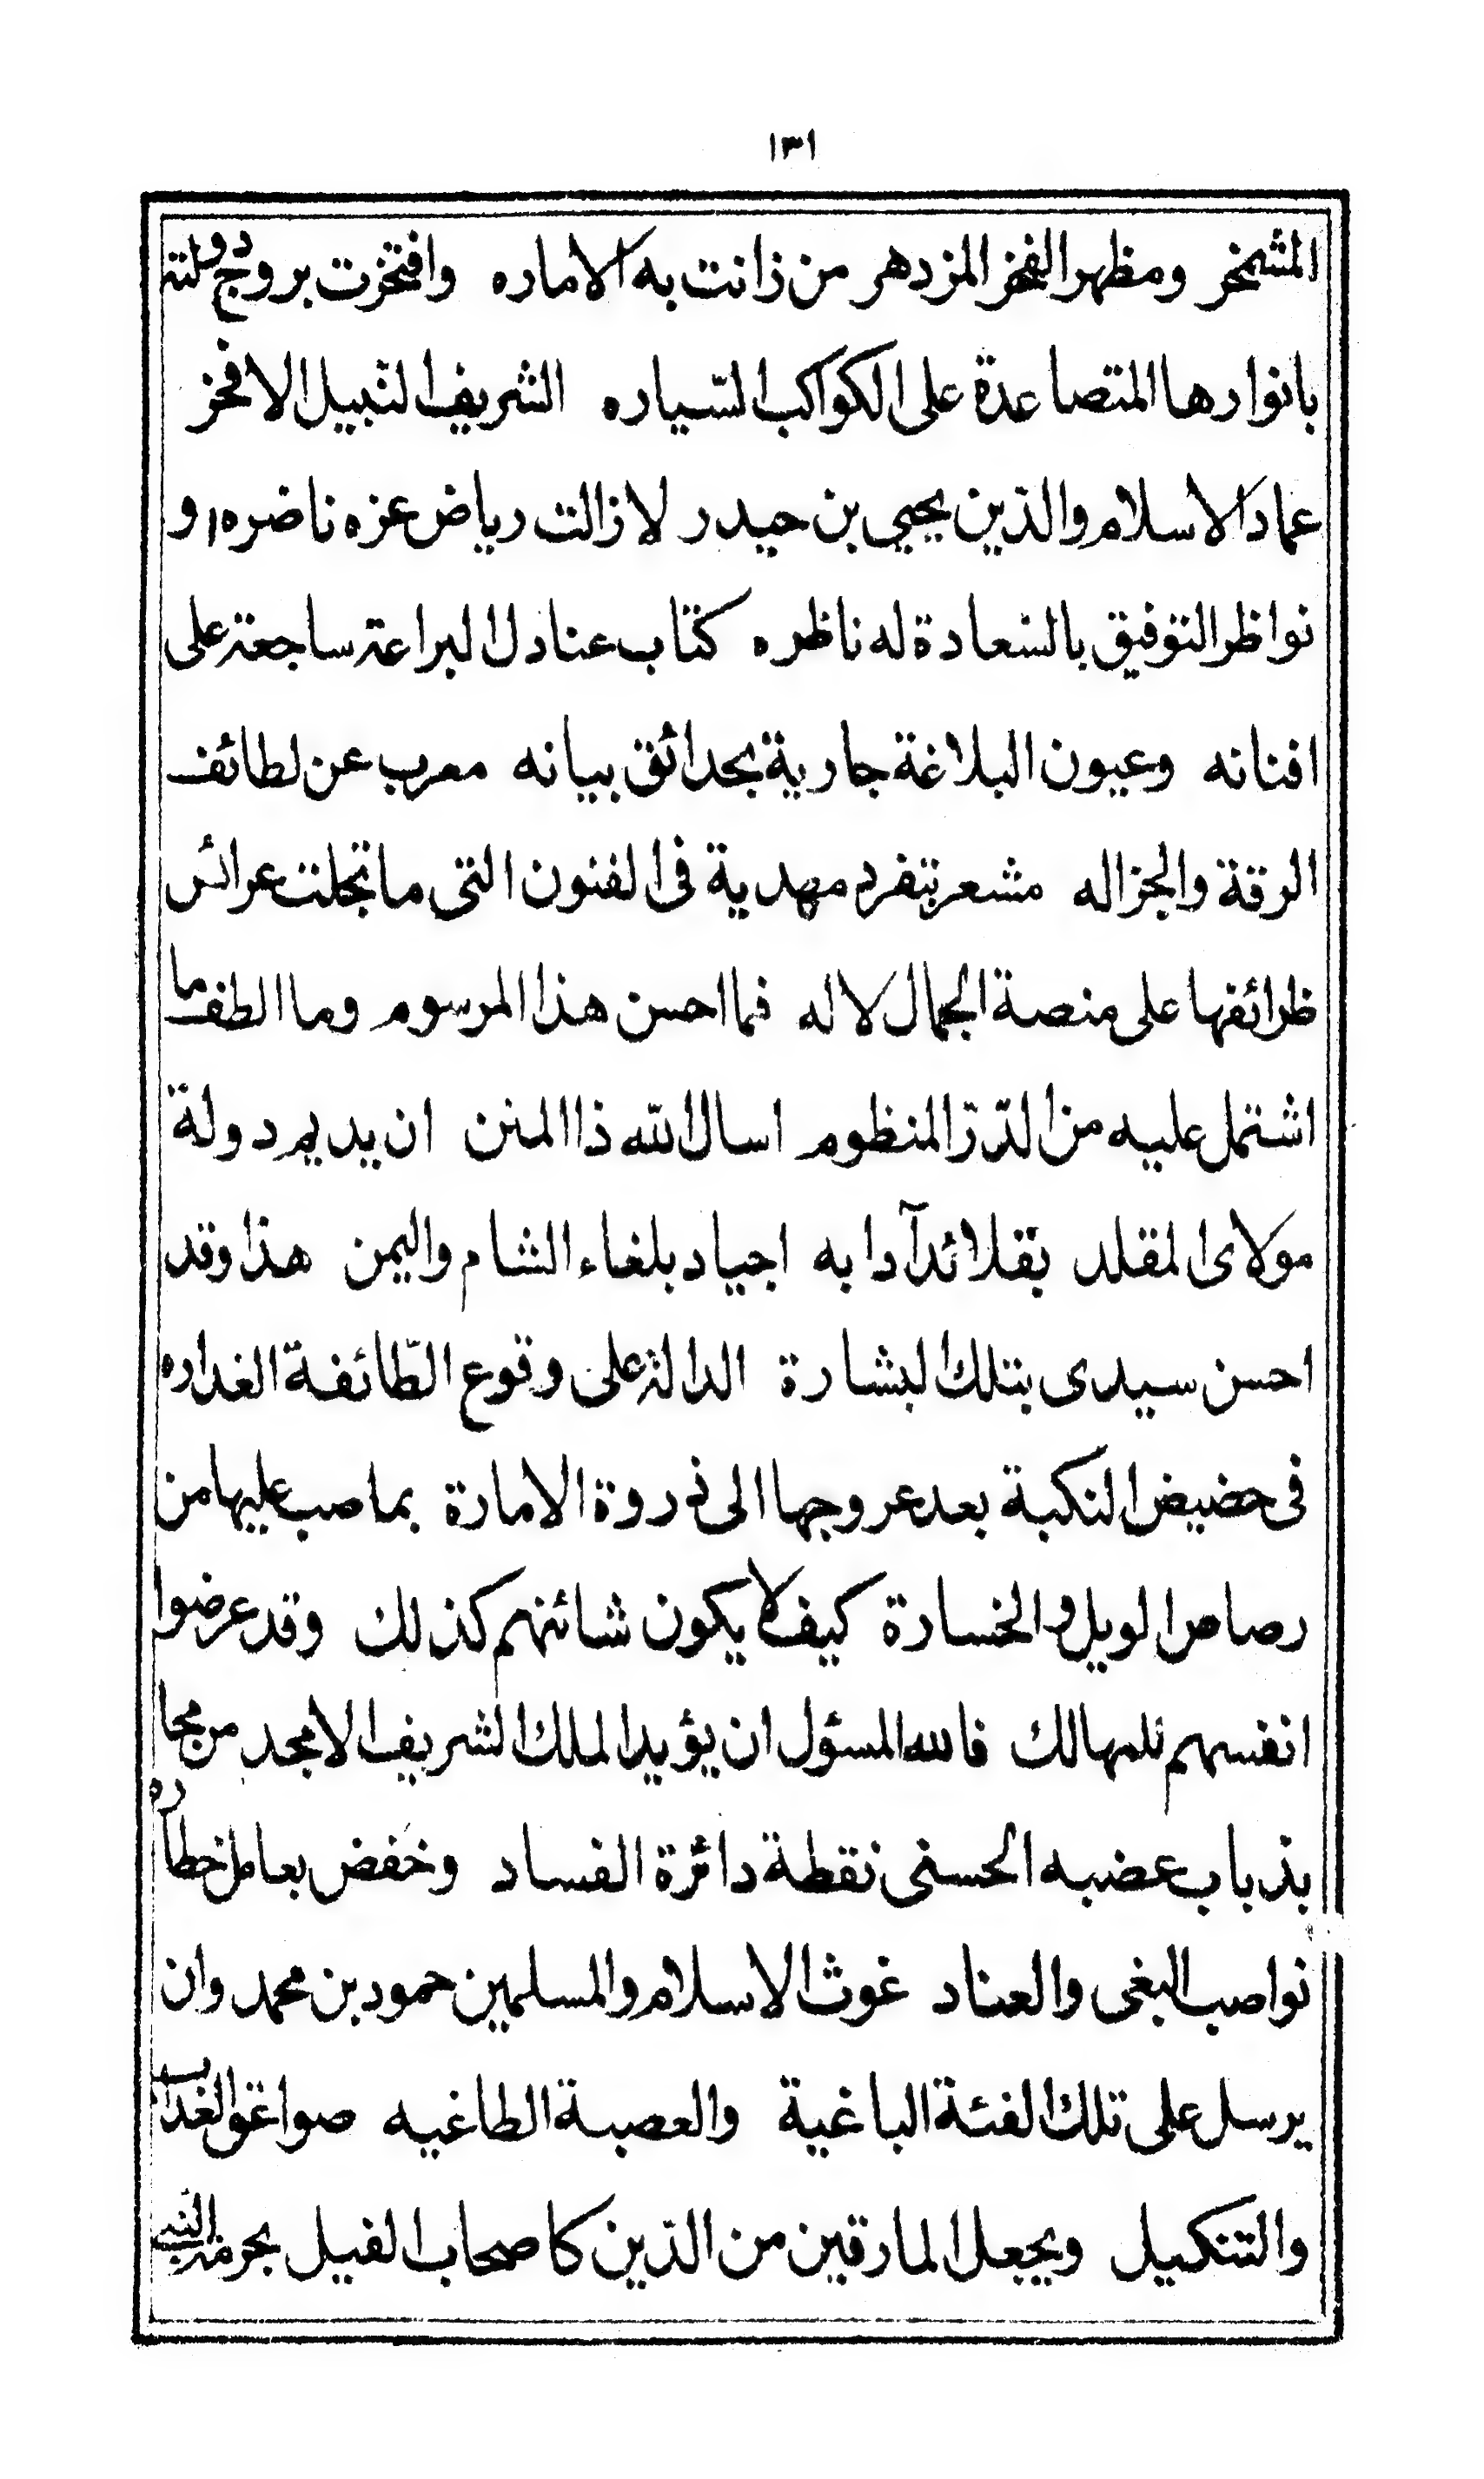 ١٣١
المشمخر ومظهر الفخر المزدهر من زانت به الاماره وافتخرت بروج دولته
بانوارها المتصاعدة على الكواكب السّياره الشريف النبيل الافخر
عماد الاسلام والدّين يحيى بن حيدر لا زالت رياض عزه ناضره و
نواظر التوفيق بالسّعادة له ناظره كتاب عنادل البراعة ساجعة على
افنانه وعيون البلاغة جارية بحدائق بيانه معرب عن لطائف
الرقة والجزاله مشعر بتفرد مهدية فى الفنون التى ما تجلت عرائس
ظرائفها على منصة الجمال لاله فما احسن هذا المرسوم وما الطف ما
اشتمل عليه من الدّرّ المنظوم اسال الله ذا المنن ان يديم دولة
مولاى المقلد بقلائد آدابه اجياد بلغاء الشام واليمن هذا وقد
احسن سيدى بتلك البشارة الدالة على وقوع الطّائفة الغداره
فى حضيض النكبة بعد عروجها الى ذروة الامارة بما صب عليها من
رصاص الويل والخسارة كيف لا يكون شائنهم كذلك وقد عرضوا
انفسهم للمهالك فالله المسئول ان يؤيد الملك الشريف الامجد من محا
بذباب عضبه الحسنى نقطة دائرة الفساد وخفض بعامل خطاره
نواصب البغى والعناد غوث الاسلام والمسلمين حمود بن محمد وان
يرسل على تلك الفئة الباغية والعصبة الطاغيه صواعق العذاب
والتنكيل ويجعل المارقين من الدّين كاصحاب الفيل بحرمة النبى